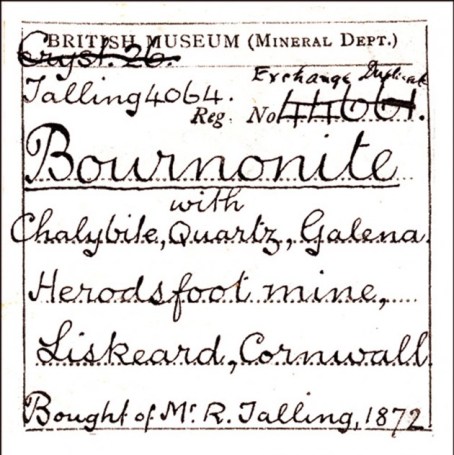 BRITISH MUSEUM (MINERAL DEPT.)
Cryst. 26.
Exchange Duplicate
Talling 4064.
Reg. No 44661.
Bournonite
with
Chalybite, Quartz, Galena.
Herodsfoot mine,
Liskeard, Cornwall
Bought of Mr. R. Talling, 1872